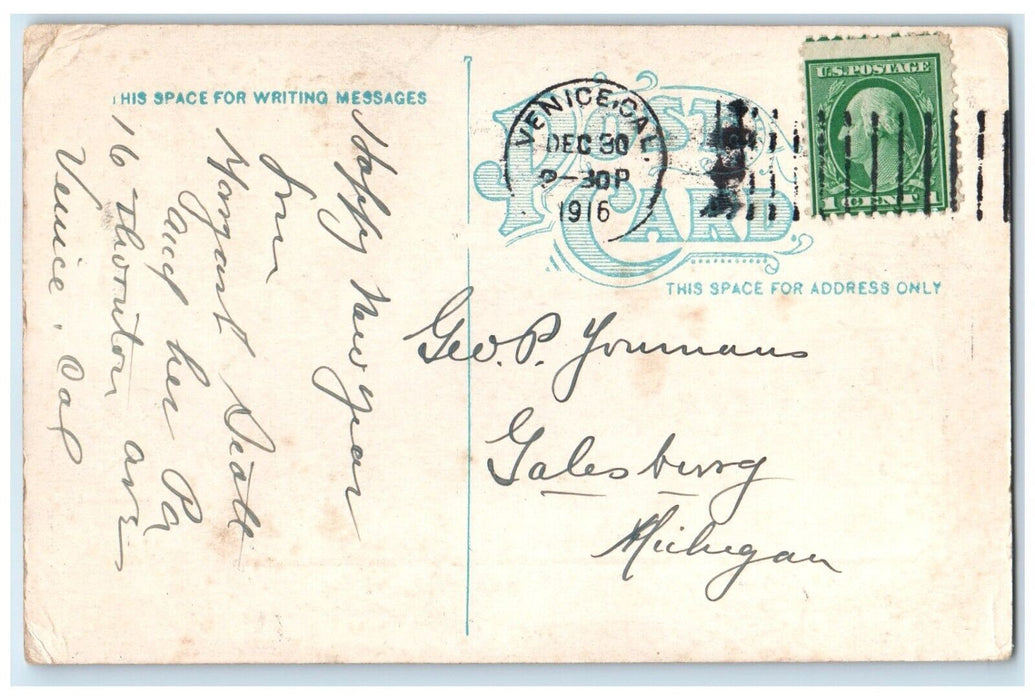 THIS SPACE FOR WRITING MESSAGES
Happy New Year
from
Margaret
and her Pa
16 Thornton ave
Venice, Cal
POST CARD
VENICE, CAL.
DEC 30
8-30P
1916
U.S. POSTAGE
1 CENT 1
THIS SPACE FOR ADDRESS ONLY
Geo. P. Youmans
Galesburg
Michigan